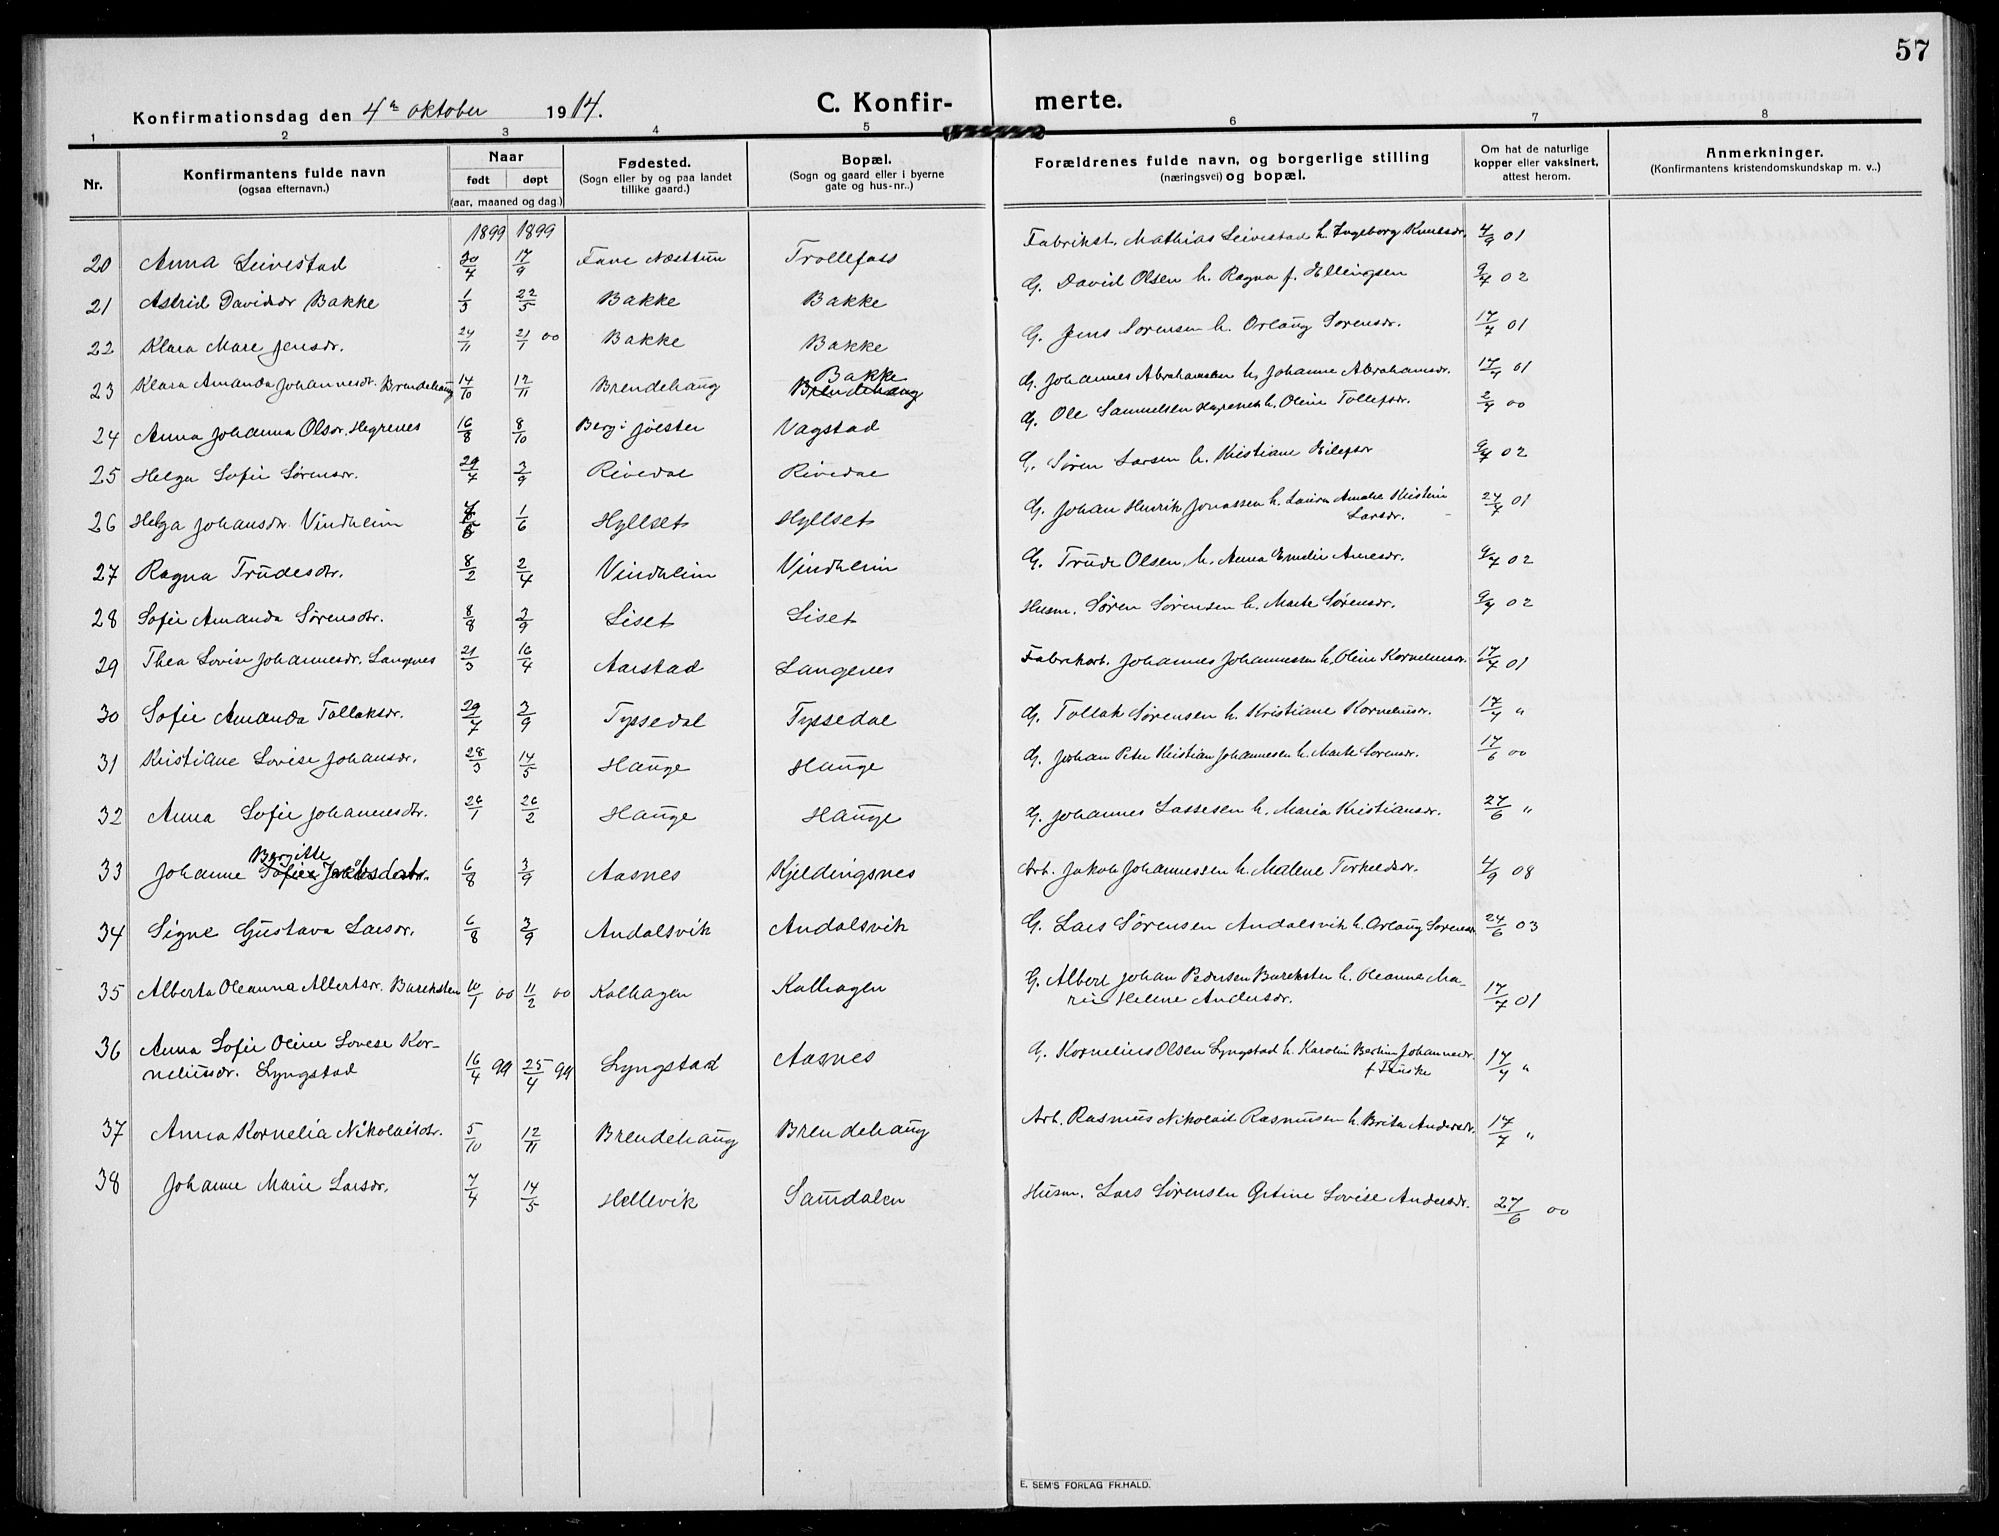 57
Konfirmationsdag den 4de oktober 1914.
C. Konfir- merte.
1 2 3 4 5 6 7 8
Nr.
Konfirmantens fulde navn
(ogsaa efternavn.)
Naar
født døpt
(aar, maaned og dag.)
Fødested.
(Sogn eller by og paa landet
tillike gaard.)
Bopæl.
(Sogn og gaard eller i byerne
gate og hus-nr..)
Forældrenes fulde navn, og borgerlige stilling
(næringsvei) og bopæl.
Om hat de naturlige
kopper eller vaksinert,
attest herom.
Anmerkninger.
(Konfirmantens kristendomskundskap m. v..)
1899 1899
20 Anna Leivestad 20/4 17/9 Fane Næsttun Trollefoss Fabrikst. Mathias Leivestad h. Ingeborg Knutsdr. 4/9 01
21 Astrid Davidsdr Bakke 1/3 22/5 Bakke Bakke G. David Olsen h. Ragna f. Ellingsen 9/7 02
22 Klara Mare Jensdr. 24/11 21/1 00 Bakke Bakke G. Jens Sørensen h. Orlaug Sørensdr. 17/7 01
23 Klara Amanda Johannesdr. Brendehaug 14/10 12/11 Brendehaug Bakke Brendehaug G. Johannes Abrahamsen h. Johanne Abrahamsdr. 17/7 01
24 Anna Johanna Olsdr. Hegrenes 16/8 8/10 Berg i Jølster Vagstad G. Ole Samuelsen Hegrenes h. Oline Tollefsdr. 2/7 00
25 Helga Sofie Sørensdr. 29/7 3/9 Rivedal Rivedal G. Søren Larsen h. Kristiane Eilefsdr 9/7 02
26 Helga Johansdr. Vindheim 1/6 Hyllset Hyllset G. Johan Henrik Jonassen h. Laura Amalia Kristine
Larsdr. 24/7 01
27 Ragna Trudesdtr. 8/2 2/4 Vindheim Vindheim G. Trude Olsen h. Anna Emelie Arnesdr. 9/7 02
28 Sofie Amanda Sørensdtr. 8/8 3/9 Liset Liset Husm. Søren Sørensen h. Marte Sørensdr. 9/7 02
29 Thea Lovise Johannesdr. Langenes 21/3 16/4 Aarstad Langenes Fabrikarb. Johannes Johannessen h. Oline Korneliusdr. 17/7 01
30 Sofie Amanda Tollaksdr. 29/7 3/9 Tyssedal Tyssedal G. Tollak Sørensen h. Kristiane Korneliusdr. 17/7 "
31 Kristiane Lovise Johansdr. 28/3 14/5 Hauge Hauge G. Johan Peter Kristian Johannesen h. Marte Sørensdr. 17/6 00
32 Anna Sofie Johannesdtr. 26/1 26/2 Hauge Hauge G. Johannes Lassesen h. Maria Kristiansdr. 27/6 "
Bergitte
33 Johanne Sofie Jakobsdatr. 6/8 3/9 Aasnes Kjeldingsnes Arb. Jakob Johannessen h. Malene Torkeldsdr. 4/9 08
34 Signe Gustava Larsdr. 6/8 3/9 Andalsvik Andalsvik G. Lars Sørensen Andalsvik h. Orlaug Sørensdr. 24/6 03
35 Alberta Oleanna Albertsdr. Bareksten 10/1 00 11/2 00 Kalhagen Kalhagen G. Albert Johan Pedersen Bareksten h. Oleanna Ma-
rie Helene Andersdr. 17/7 01
36 Anna Sofie Oline Lovise Kor-
neliusdr. Lyngstad 16/4 99 25/4 99 Lyngstad Aasnes G. Kornelius Olsen Lyngstad h. Karolin Bertine Johannesdr.
f Tauske 17/7 "
37 Anna Kornelia Nikolaisdtr. 5/10 12/11 Brendehaug Brendehaug Arb. Rasmus Nikolai Rasmussen h. Brita Andersdr. 17/7 "
38 Johanne Marie Larsdr. 7/4 14/5 Hellevik Samdalen Husm. Lars Sørensen Lovise Andersdr. 27/6 00
E. SEM'S FORLAG FR.HALD.